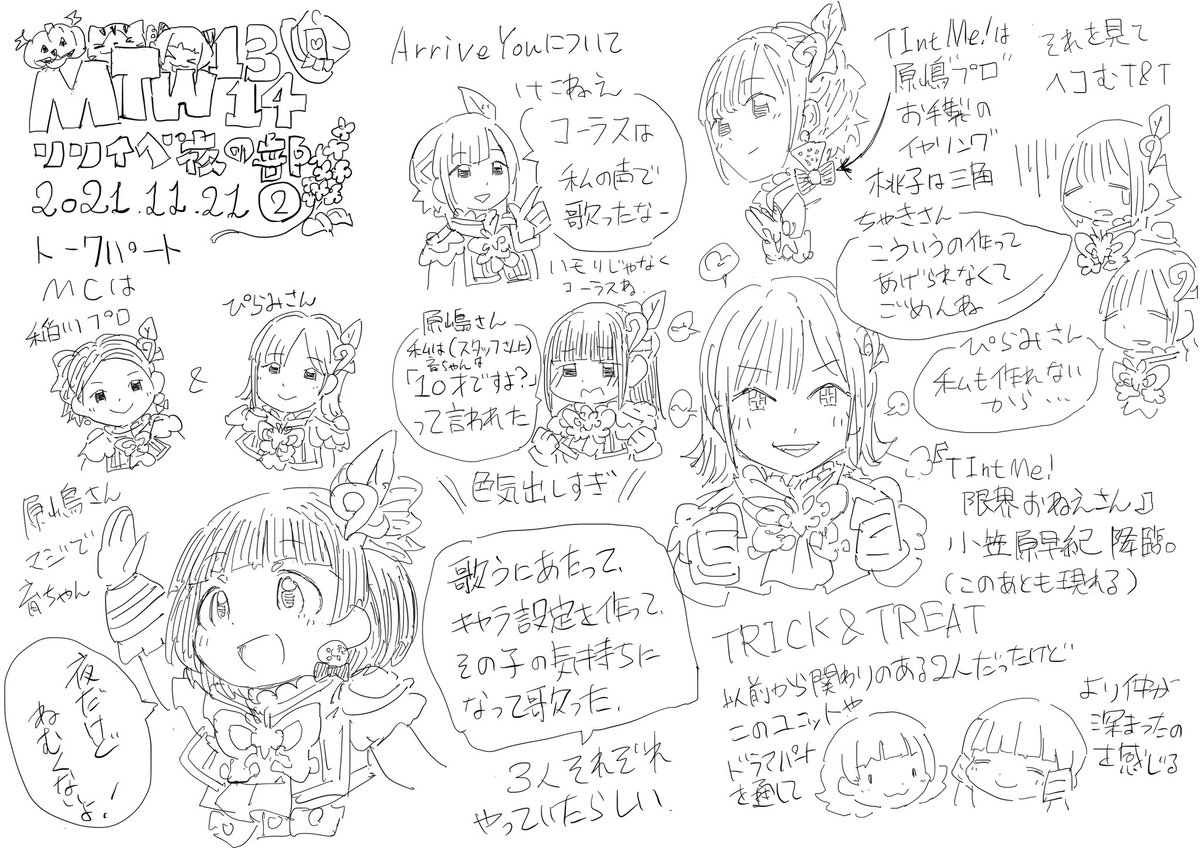 MTW 13 14
リリイベ夜の部
2021.11.21 ②
トークパート
MCは
稲川プロ
&
ぴらみさん
原嶋さん
マジで
育ちゃん
夜だけど
ねむくないよ!
Arrive Youについて
けこねえ
コーラスは
私の声で
歌ったなー
ハモリじゃなく
コーラスね
原嶋さん
私は(スタッフさんに)
育ちゃんは
「10才ですよ?」
って言われた
\\色気出しすぎ//
歌うにあたって、
キャラ設定を作って、
その子の気持ちに
なって歌った.
3人それぞれ
やっていたらしい.
TIntMe!は
原嶋プロ
お手製の
イヤリング
桃子は三角
それを見て
ヘコむT&T
ちゃきさん
こういうの作って
あげられなくて
ごめんね
ぴらみさん
私も作れない
から…
「TIntMe!
限界おねえさん」
小笠原早紀 降臨。
(このあとも現れる)
TRICK&TREAT
以前から関わりのある2人だったけど
このユニットや
ドラマパート
を通して
より仲が
深まったの
を感じる